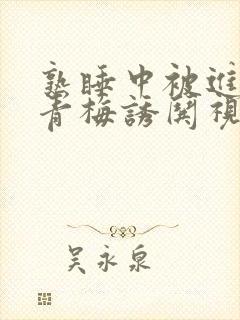 熟睡中被進
青梅誘関視
吴永泉